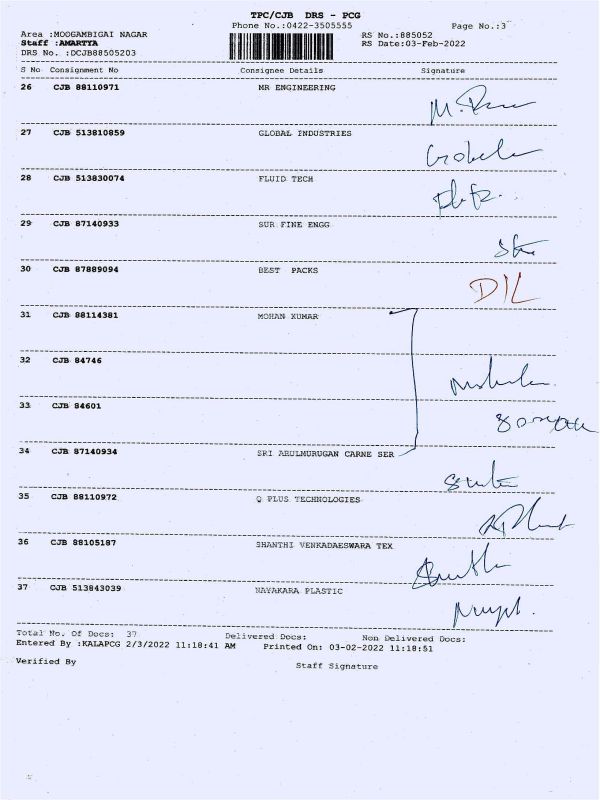 TPC/CJB DRS - PCG
Phone No.:0422-3505555 Page No.:3
Area :MOOGAMBIGAI NAGAR RS No.:885052
Staff :AMARTYA RS Date:03-Feb-2022
DRS No. :DCJB88505203
S No Consignment No Consignee Details Signature
26 CJB 88110971 MR ENGINEERING
27 CJB 513810859 GLOBAL INDUSTRIES
28 CJB 513830074 FLUID TECH
29 CJB 87140933 SUR FINE ENGG
30 CJB 87889094 BEST PACKS
D/L
31 CJB 88114381 MOHAN KUMAR
32 CJB 84746
33 CJB 84601
34 CJB 87140934 SRI ARULMURUGAN CARNE SER
35 CJB 88110972 Q PLUS TECHNOLOGIES
36 CJB 88105187 SHANTHI VENKADAESWARA TEX
37 CJB 513843039 NAYAKARA PLASTIC
Total No. Of Docs: 37 Delivered Docs: Non Delivered Docs:
Entered By :KALAPCG 2/3/2022 11:18:41 AM Printed On: 03-02-2022 11:18:51
Verified By Staff Signature